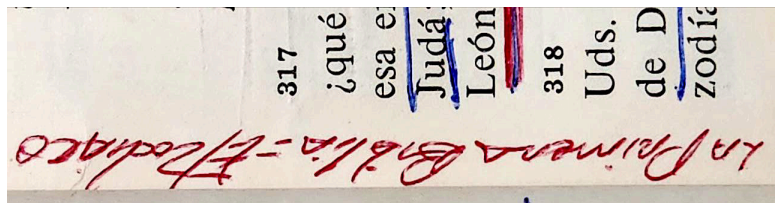 317
¿qué
esa e
Judá
León
318
Uds.
de D
zodía
La Primera Biblia = El Zodiaco